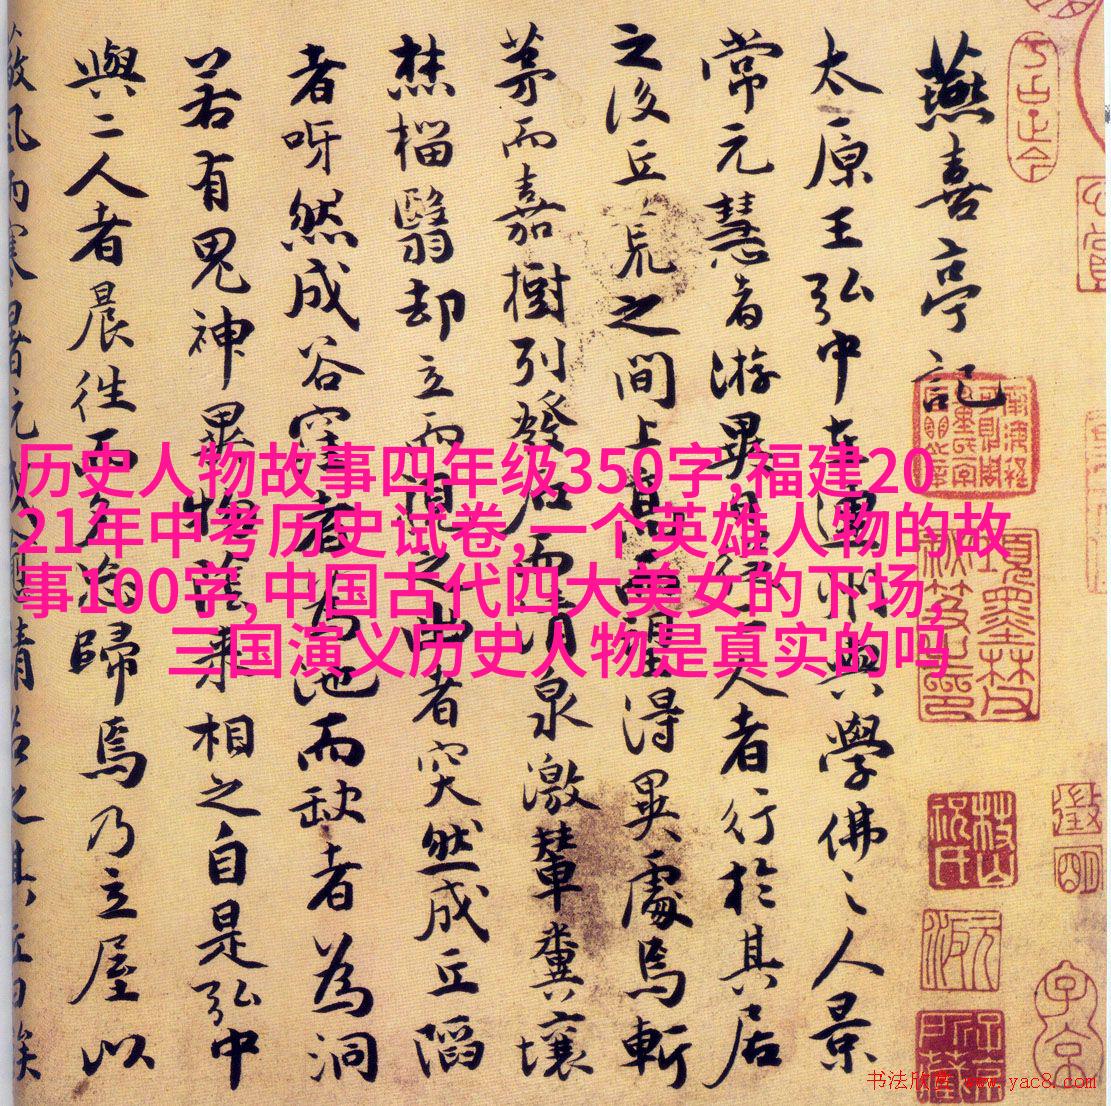 燕喜亭記
太原王弘中在連州與學佛之人景
常元慧者游異日從二人者行於其居
之後丘荒之間上高而望得異處焉斬
茅而嘉樹列發石而清泉激輦糞壤
燔椔翳却立而視之出者突然成丘陷
者呀然成谷窪者為池而缺者為洞
若有鬼神異物陰来相之自是弘中
與二人者晨往而夕忘歸焉乃立屋以
历史人物故事四年级350字,福建20
21年中考历史试卷,一个英雄人物的故
事100字,中国古代四大美女的下场,
三国演义历史人物是真实的吗
书法欣赏 www.yac8.com